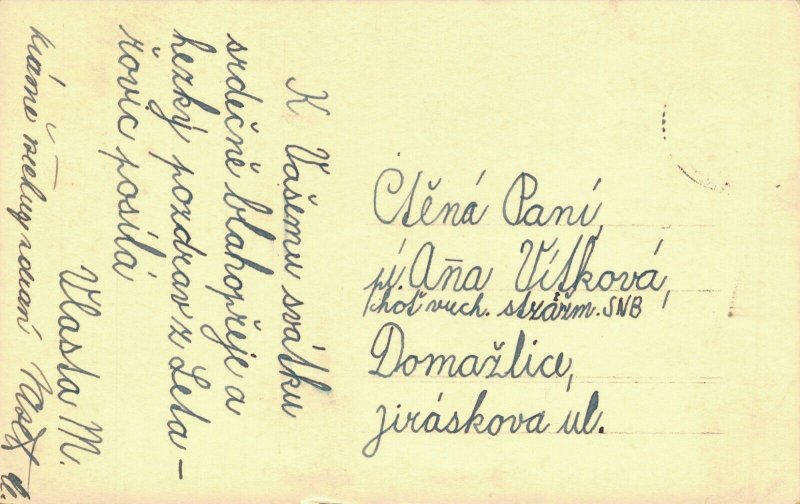 K Vašemu svátku
srdečně blahopřeje a
hezký pozdrav z Leta-
řovic posílá
Vlasta M.
Ctěná Paní,
pí. Aňa Vítková,
choť vrch. strážm. SNB
Domažlice,
Jiráskova ul.